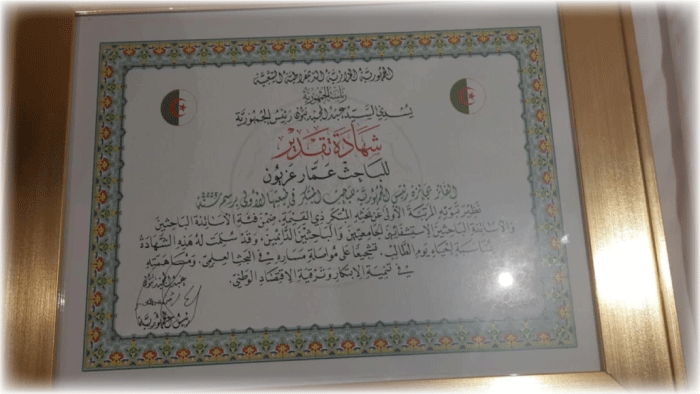 الجمهورية الجزائرية الديمقراطية الشعبية
رئاسة الجمهورية
يسدي السيد عبد المجيد تبون رئيس الجمهورية
شهادة تقدير
للباحث عمار عزيون
الفائز بجائزة رئيس الجمهورية للباحث المبتكر في طبعتها الأولى برسم سنة
نظير تبوئه المرتبة الأولى عن بحثه المبتكر ذي القيمة، ضمن فئة الأساتذة الباحثين
والأساتذة الباحثين الاستشفائيين الجامعيين والباحثين الدائمين، وقد سلمت له هذه الشهادة
بمناسبة إحياء يوم الطالب، تشجيعا على مواصلة مساره في البحث العلمي، ومساهمته
في تنمية الابتكار وترقية الاقتصاد الوطني.
عبد المجيد تبون
رئيس الجمهورية